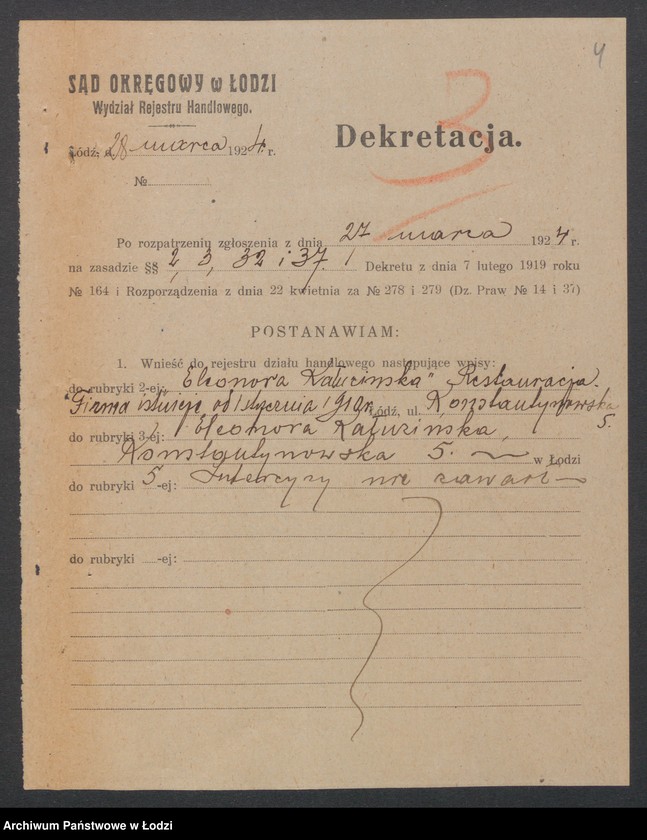 4
SĄD OKRĘGOWY w ŁODZI
Wydział Rejestru Handlowego.
3
Dekretacja.
Łódź, d. 28 marca 1924 r.
№
Po rozpatrzeniu zgłoszenia z dnia 27 marca 1924 r.
na zasadzie §§ 2, 3, 32 i 37. Dekretu z dnia 7 lutego 1919 roku
№ 164 i Rozporządzenia z dnia 22 kwietnia za № 278 i 279 (Dz. Praw № 14 i 37)
POSTANAWIAM:
1. Wnieść do rejestru działu handlowego następujące wpisy:
do rubryki 2-ej: „Eleonora Kaluzińska” Restauracja.
Firma istnieje od 1 stycznia r. Łódź, ul. Konstantynowska 5.
do rubryki 3-ej: Eleonora Kaluzińska,
Konstantynowska 5. w Łodzi
do rubryki 5-ej: Intercyzy nie zawarł
do rubryki -ej:
Archiwum Państwowe w Łodzi